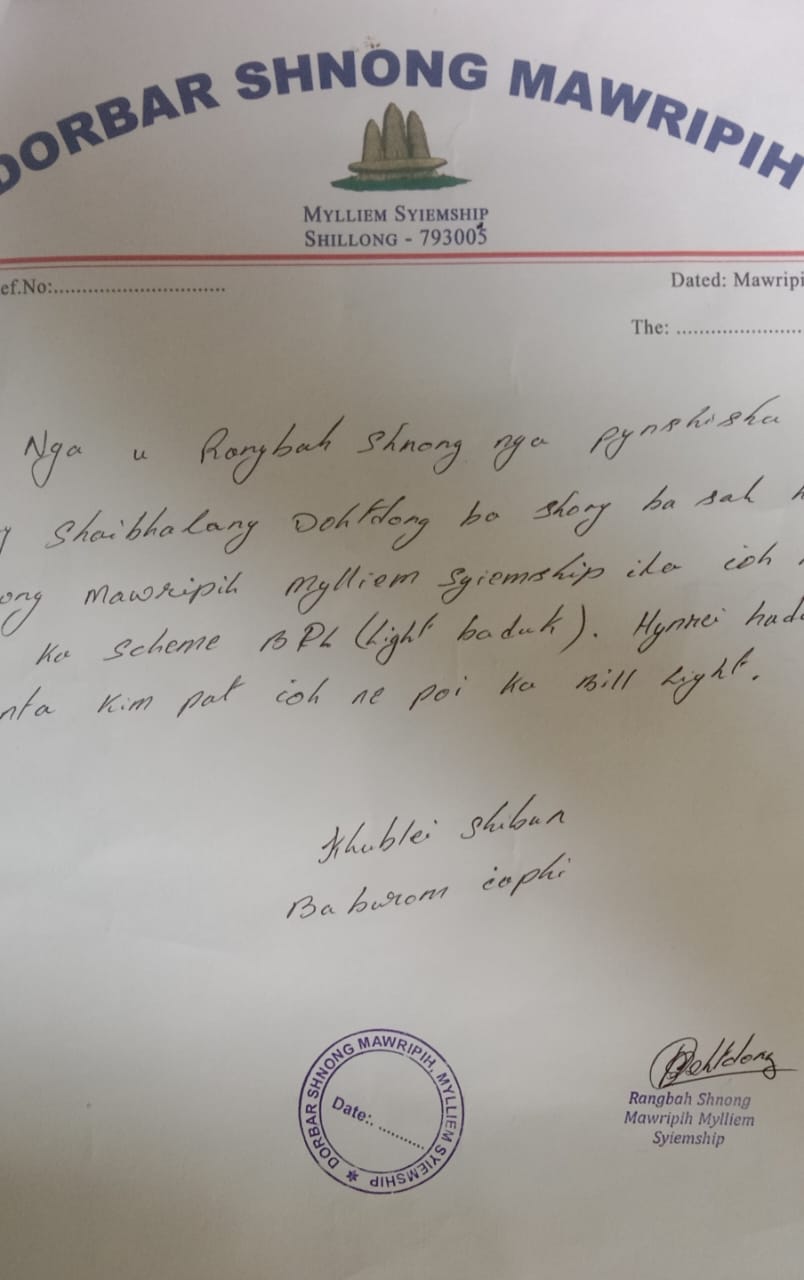 DORBAR SHNONG MAWRIPIH
MYLLIEM SYIEMSHIP
SHILLONG - 793005
ef.No:..............................
Dated: Mawripi
The: ......................
Nga u Rangbah Shnong nga pynshisha
Shaibhalang Dohtdong ba shong ba sah
ong Mawripih Mylliem Syiemship ita ioh
Ka Scheme BPL (Light baduk). Hynrei had
nta kim pat ioh ne poi ka Bill Light.
Khublei Shibun
Ba burom iaphi
DORBAR SHNONG MAWRIPIH, MYLLIEM SYIEMSHIP
Date:. ..........
Dohtdong
Rangbah Shnong
Mawripih Mylliem
Syiemship